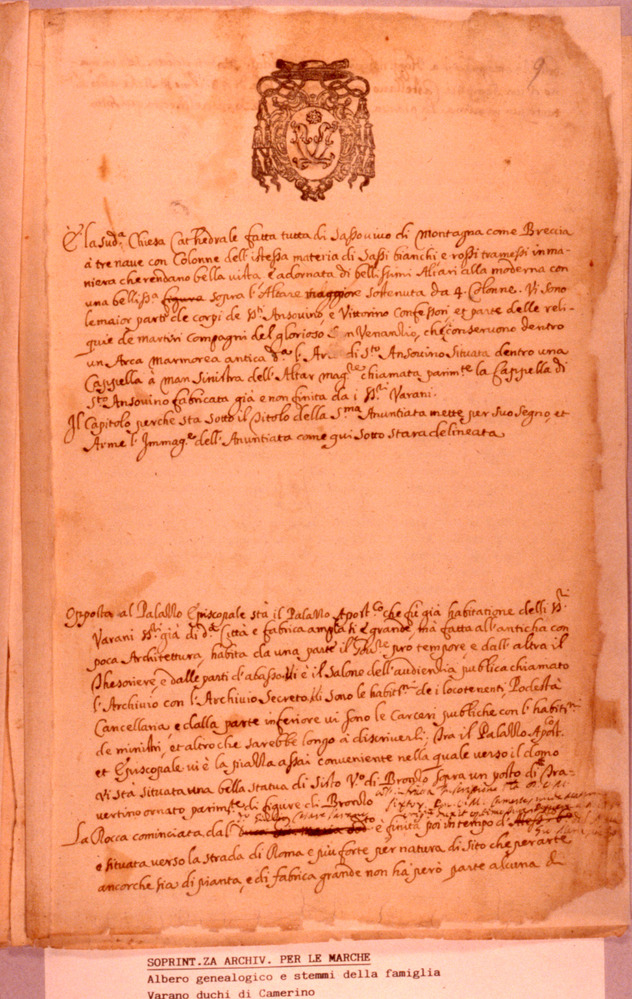 9
È la sud.ª Chiesa Cathedrale fatta tutta di Sassovivo di Montagna come Breccia
à tre nave con Colonne dell'istessa materia di Sassi bianchi e rossi tramessi in ma-
niera che rendano bella vista è adornata di bellissimi Altari alla moderna con
una belliss.ª figura sopra l'Altare maggiore sostenuta da 4 Colonne. Vi sono
le maior parti de corpi de S.ti Ansovino e Vittorino Confessori, et parte delle reli-
quie de martiri Compagni del glorioso San Venanzio, che conservono dentro
un Arca Marmorea antica d.ª l'Arca di S.to Ansovino situata dentro una
Cappella à man sinistra dell'Altar mag.re chiamata parim.te la Cappella di
S.to Ansovino fabricata già e non finita da i SS.ri Varani.
Il Capitolo perche sta sotto il titolo della S.ma Anuntiata mette per suo segno, et
Arme l'Immag.e dell'Anuntiata come qui sotto stara delineata
Opposta al Palazzo Episcopale stà il Palazzo Apost.co che fù già habitatione delli SS.ri
Varani SS.ri già di d.ª Città e fabrica ampla e grande, mà fatta all'anticha con
poca Architettura, habita da una parte il pro tempore e dall'altra il
Thesoriere, e dalle parti d'abasso vi è il Salone dell'audientia publica chiamato
l'Archivio con l'Archivio Secreto vi sono le habit.ni de i locotenenti, Podestà
Cancellaria, e dalla parte inferiore vi sono le Carceri publiche con l'habit.ni
de ministri, et altro che sarebbe longo à discriverli; Tra il Palazzo Apost.
et Episcopale vi è la piazza assai conveniente nella quale verso il domo
vi sta situata una bella statua di Sisto V.º di Bronzo sopra un posto di Tra-
vertino ornato parim.te di figure di Bronzo
La Rocca cominciata dal è finita poi in tempo
è situata verso la strada di Roma e più forte per natura di sito che per arte
ancorche sia di pianta, e di fabrica grande non ha però parte alcuna di
SOPRINT.ZA ARCHIV. PER LE MARCHE
Albero genealogico e stemmi della famiglia
Varano duchi di Camerino